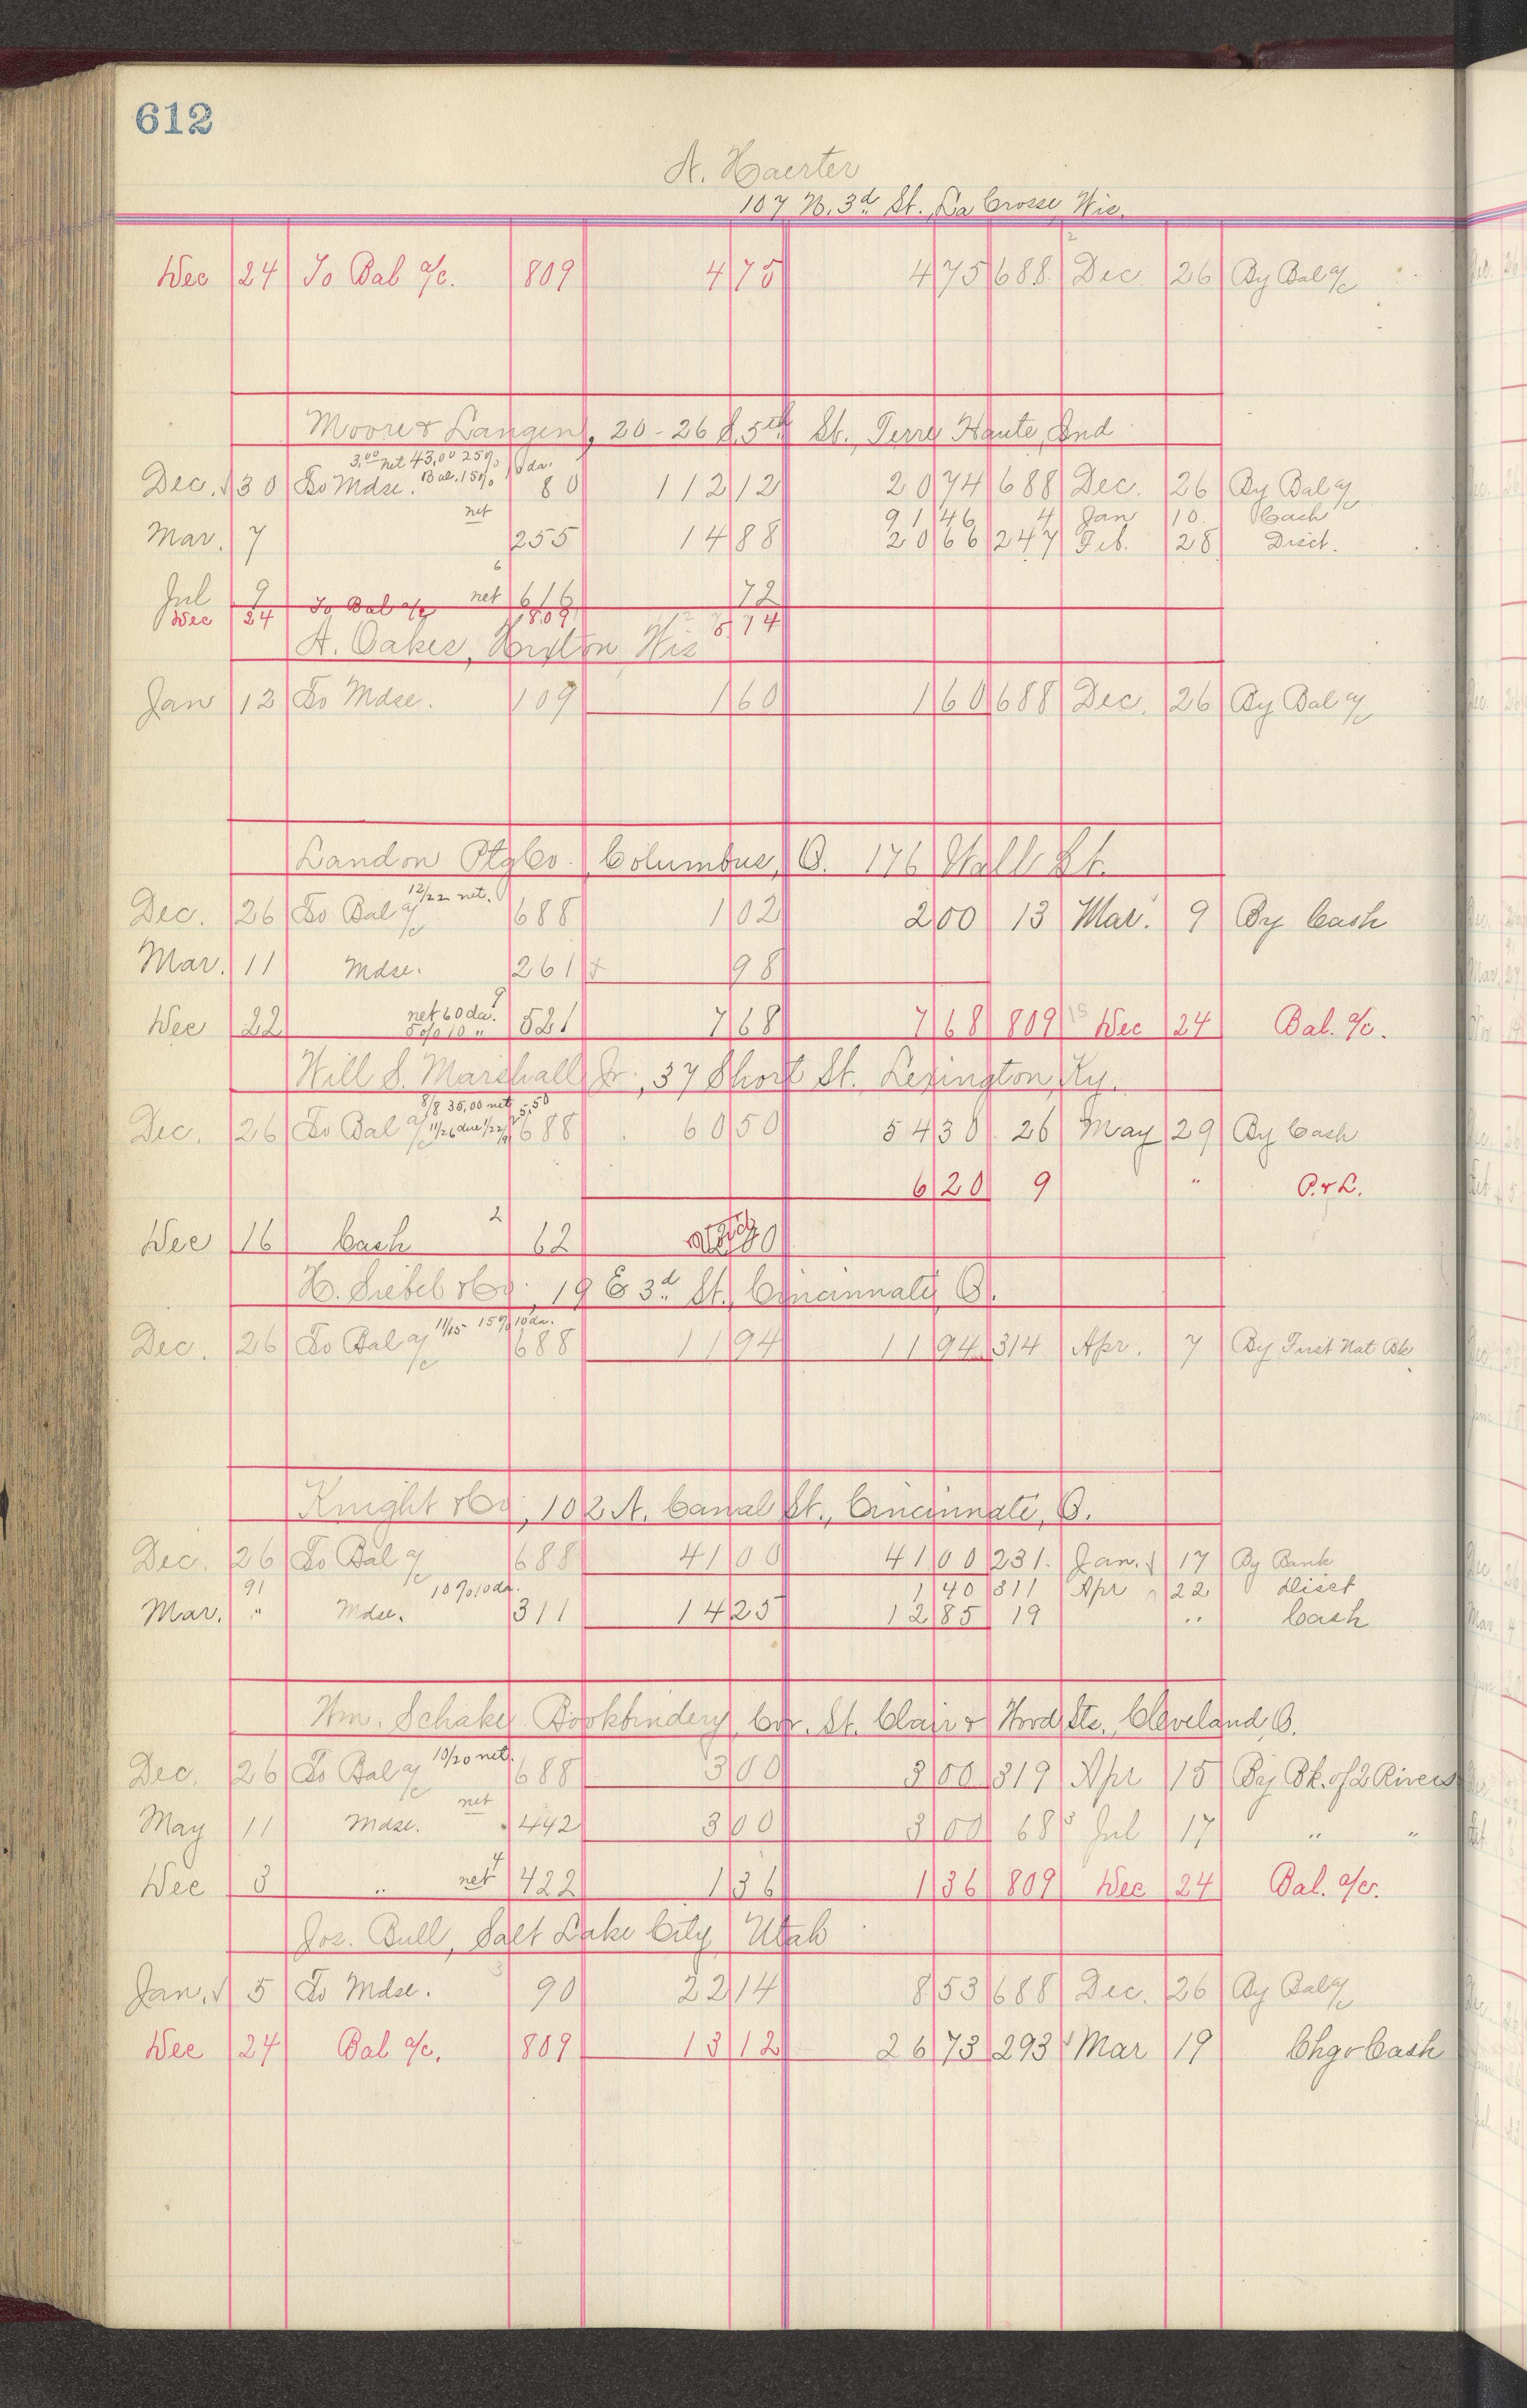 612
A. Haerter
107 N. 3d St. La Crosse, Wis.
Dec 24 To Bal a/c. 809 4 75 4 75 688 Dec 26 By Bal a/c
Moore & Langen, 20-26 S. 5th St., Terre Haute, Ind
3.00 net 43.00 25%
Dec. 30 To Mdse. Bal. 15% 10 da. 80 112 12 20 74 688 Dec. 26 By Bal a/c
91 46 4 Jan 10 Cash
Mar. 7 net 255 14 88 20 66 247 Feb. 28 Disct.
Jul 9 net 616 72
Dec 24 To Bal a/c 809 5 74
A. Oakes, Hixton Wis
Jan 12 To Mdse. 109 1 60 1 60 688 Dec. 26 By Bal a/c
Landon Ptg Co. Columbus, O. 176 Wall St.
Dec. 26 To Bal a/c 12/22 net. 688 1 02 2 00 13 Mar. 9 By Cash
Mar. 11 Mdse. 261 98
Dec 22 net 60 da. 5% 10 " 521 7 68 7 68 809 Dec 24 Bal. a/c.
Will S. Marshall Jr., 37 Short St. Lexington, Ky.
8/8 35.00 net 5.50
Dec. 26 To Bal a/c 11/26 due 1/22/91 688 60 50 54 30 26 May 29 By Cash
6 20 9 " P. & L.
Dec 16 Cash 2 62
H. Siebel & Co., 19 E 3d St., Cincinnati, O.
Dec. 26 To Bal a/c 11/15 15% 10 da. 688 11 94 11 94 314 Apr. 7 By First Nat Bk
Knight & Co., 102 A. Canal St., Cincinnati, O.
Dec. 26 To Bal a/c 688 41 00 41 00 231 Jan. 17 By Bank
91 10% 10 da. 1 40 311 Apr 22 Disct
Mar. " Mdse. 311 14 25 12 85 19 " Cash
Wm. Schake Bookbindery, Cor. St. Clair & Wood Sts., Cleveland, O.
Dec. 26 To Bal a/c 10/20 net. 688 3 00 3 00 319 Apr 15 By Bk. of 2 Rivers
May 11 Mdse. net 442 3 00 3 00 68 Jul 17 " "
Dec 3 " net 4 422 1 36 1 36 809 Dec 24 Bal. a/c.
Jos. Bull, Salt Lake City, Utah
Jan. 5 To Mdse. 90 22 14 8 53 688 Dec. 26 By Bal a/c
Dec 24 Bal a/c. 809 13 12 26 73 293 Mar 19 Chg & Cash